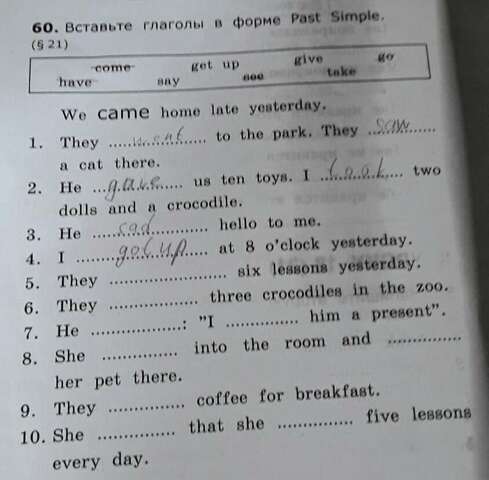 60. Вставьте глаголы в форме Past Simple.
(§ 21)
come get up give go
have say see take
We came home late yesterday.
1. They .. went .. to the park. They .. saw ..
a cat there.
2. He ... gave ... us ten toys. I ... took ... two
dolls and a crocodile.
3. He ... sad ... hello to me.
4. I ... got up ... at 8 o'clock yesterday.
5. They .................. six lessons yesterday.
6. They .................. three crocodiles in the zoo.
7. He ..............: "I .............. him a present".
8. She .............. into the room and ..............
her pet there.
9. They .............. coffee for breakfast.
10. She .............. that she .............. five lessons
every day.